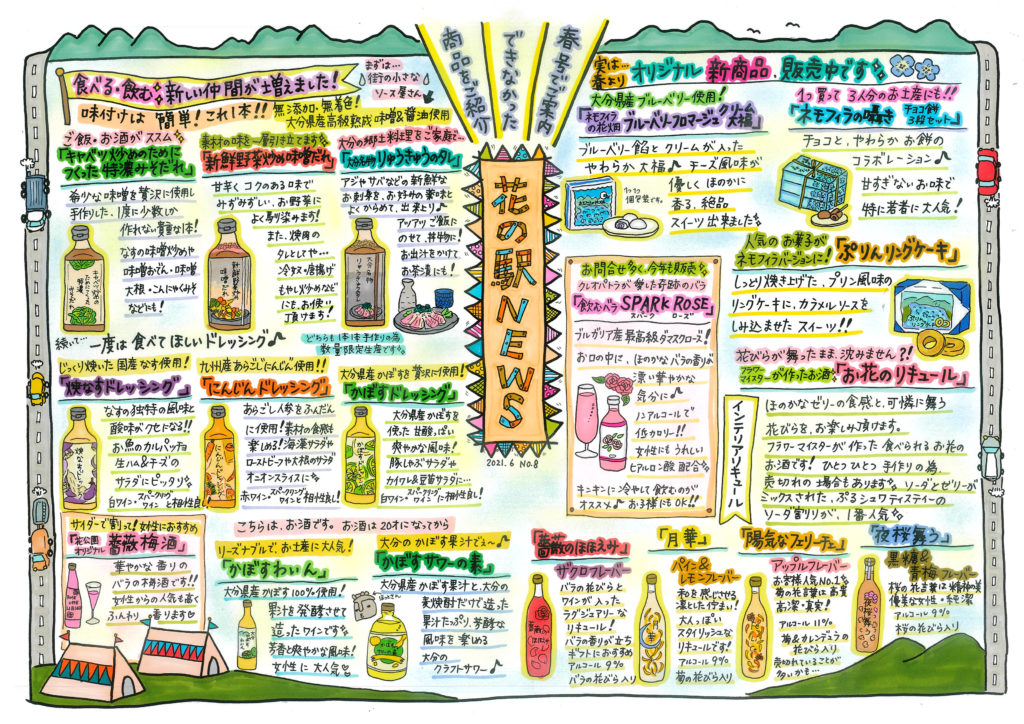 花の駅NEWS
2021.6 No.8
春号でご案内
できなかった
商品をご紹介
食べる・飲む 新しい仲間が増えました!
まずは…
街の小さな
ソース屋さん
味付けは 簡単!これ1本!!
無添加・無着色!
大分県産高級熟成味噌&醤油使用
ご飯・お酒がススム
「キャベツ炒めのために
つくった特濃みそだれ」
希少な味噌を贅沢に使用し
手作りした、1度に少数しか
作れない貴重な1本!
なすの味噌炒めや
味噌おでん・味噌
大根・こんにゃくみそ
などにも!
素材の味を一層引き立てます
「新鮮野菜炒め味噌だれ」
甘辛くコクのある味で
みずみずしい、お野菜に
よく馴染みます!
また、焼肉の
タレとしてや…
冷奴・唐揚げ
もやし炒めなど
にも、お使い
頂けます!
大分の郷土料理をご家庭で…
「大分名物りゅうきゅうのタレ」
アジやサバなどの新鮮な
お刺身を、お好みの薬味と
よくからめて、出来上り♪
アツアツご飯に
のせて、丼物に!
お出汁をかけて
お茶漬に!
どちらも1本1本手作りの為
数量限定生産です。
続いて… 一度は食べてほしいドレッシング♪
じっくり焼いた国産なす使用!
「焼なすドレッシング」
なすの独特の風味と
酸味がクセになる!!
お魚のカルパッチョ
生ハム&チーズの
サラダにピッタリ
白ワイン・スパークリングワインと相性良!
九州産あらごしにんじん使用!!
「にんじんドレッシング」
あらごし人参をふんだん
に使用!素材の食感を
楽しめる!海藻サラダや
ローストビーフや大根のサラダ
オニオンスライスに
赤ワイン・スパークリングワインと相性良!
大分県産かぼすを贅沢に使用!
「かぼすドレッシング」
大分県産かぼすを
使った甘酸っぱい
爽やかな風味!
豚しゃぶサラダや
カイワレ&豆苗サラダに…
白ワイン・スパークリングワインに相性良し!
サイダーで割って!女性におすすめ
花公園オリジナル「薔薇梅酒」
華やかな香りの
バラの梅酒です!!
女性からの人気も高く
ふんわり香ります
こちらは、お酒です。お酒は20才になってから
リーズナブルで、お土産に大人気!
「かぼすわいん」
大分県産かぼす100%使用!
果汁を発酵させて
造ったワインです
芳香と爽やかな風味!
女性に大人気
大分のかぼす果汁どぇ〜♪
「かぼすサワーの素」
大分県産かぼす果汁と、大分の
麦焼酎だけで造った
果汁たっぷり、芳醇な
風味を楽める
大分の
クラフトサワー♪
実は…
春より オリジナル新商品、販売中です
大分県産ブルーベリー使用!
「ネモフィラの花畑 ブルーベリーフロマージュクリーム大福」
ブルーベリー餡とクリームが入った
やわらか大福♪チーズ風味が
優しくほのかに
香る、絶品
スイーツ出来ました
1つずつ
個包装です。
1つ買って3人分のお土産にも!!
「ネモフィラの囁き チョコ餅3段セット」
チョコと、やわらかお餅の
コラボレーション♪
甘すぎないお味で
特に若者に大人気!
人気のお菓子が
ネモフィラバージョンに!
「ぷりんリングケーキ」
しっとり焼き上げた、プリン風味の
リングケーキに、カラメルソースを
しみ込ませたスイーツ!!
お問合せ多く、今年も販売
クレオパトラが愛した奇跡のバラ
「飲むバラ SPARK ROSE」
スパーク ローズ
ブルガリア産最高級ダマスクローズ!
お口の中に、ほのかなバラの香りが
漂い華やかな
気分に♪
ノンアルコールで
低カロリー!!
女性にもうれしい
ヒアルロン酸配合
キンキンに冷やして飲むのが
オススメ♪お子様にもOK!!
花びらが舞ったまま、沈みません?!
フラワーマイスターが作ったお酒「お花のリキュール」
インテリアリキュール
ほのかなゼリーの食感と、可憐に舞う
花びらを、お楽しみ頂けます。
フラワーマイスターが作った食べられるお花の
お酒です!ひとつひとつ手作りの為、
売切れの場合もあります。ソーダとゼリーが
ミックスされた、ぷるシュワテイスティーの
ソーダ割りが、1番人気
「薔薇のほほえみ」
ザクロフレーバー
バラの花びらと
ワインが入った
ラグジュアリーな
リキュール!
バラの香りが立ち
ギフトにおすすめ
アルコール9%
バラの花びら入り
「月華」
パイン&
レモンフレーバー
和を感じさせる
凛とした佇まい!
大人っぽい
スタイリッシュな
リキュールです!
アルコール9%
菊の花びら入り
「陽気なフェリーチェ」
アップルフレーバー
お客様人気No.1
菊の花言葉は高貴
高潔・真実!
アルコール11%
菊&カレンデュラの
花びら入り
売切れていることが
多いかも…
「夜桜舞う」
黒糖&
青梅フレーバー
桜の花言葉は精神の美
優美な女性・純潔
アルコール9%
桜の花びら入り